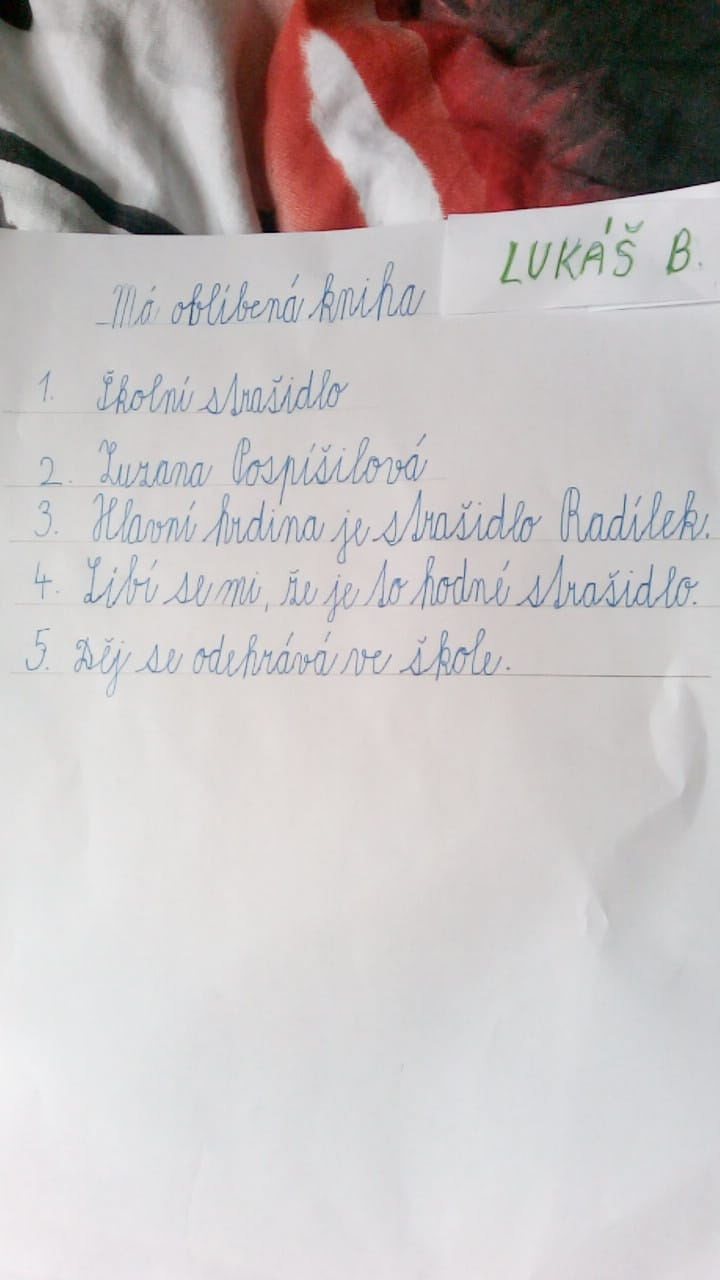 LUKÁŠ B.
Má oblíbená kniha
1. Školní strašidlo
2. Zuzana Pospíšilová
3. Hlavní hrdina je strašidlo Radílek.
4. Líbí se mi, že je to hodné strašidlo.
5. Děj se odehrává ve škole.